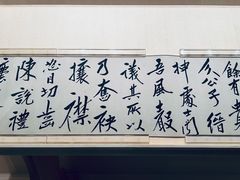 餘有貴
介公子縉
紳處士聞
吾風聲
議其所以
乃奮袂
攘襟
怒目切齒
陳說禮